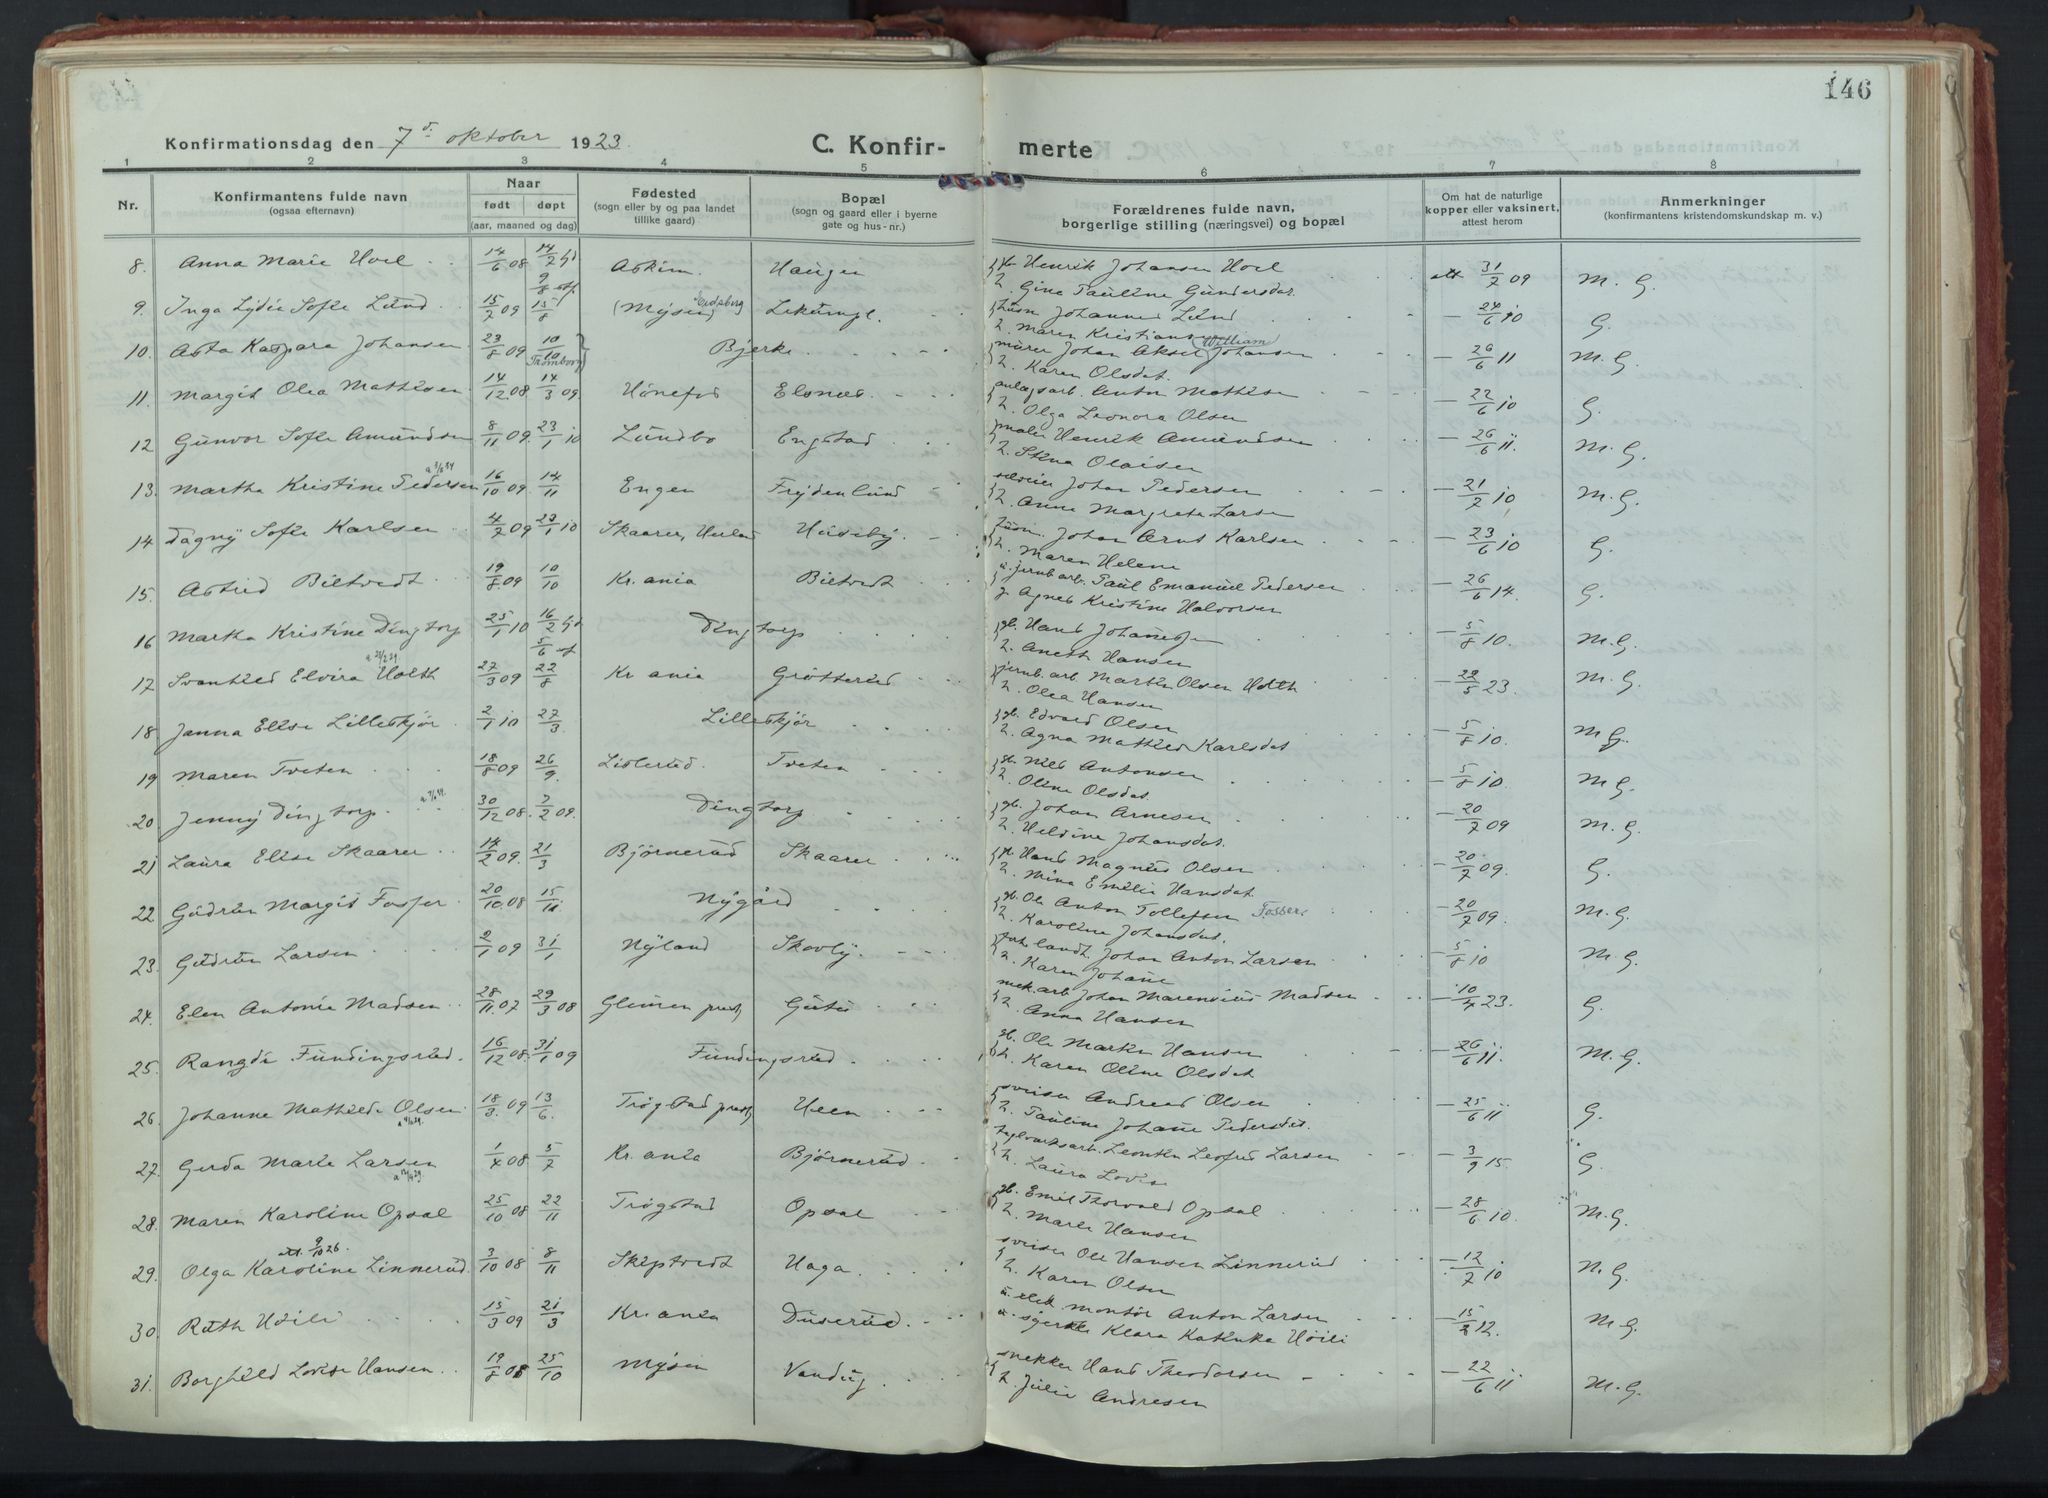 146
Konfirmationsdag den 7d oktober 1923.
C. Konfir-merte
1 2 3 4 5 6 7 8
Nr. Konfirmantens fulde navn (ogsaa efternavn) Naar født døpt (aar, maaned og dag) Fødested (sogn eller by og paa landet tillike gaard) Bopæl (sogn og gaard eller i byerne gate og hus-nr.) Forældrenes fulde navn, borgerlige stilling (næringsvei) og bopæl Om hat de naturlige kopper eller vaksinert, attest herom Anmerkninger (konfirmantens kristendomskundskap m. v.)
8. Anna Marie Hoel 14/6 08 14/2 Askim Haugen Henrik Johansen Hoel att 31/7 09 M. G.
9/8 Gina Pauline Gundersdat.
9. Inga Lydie Sofie Lund 15/2 09 15/8 (Mysen) Eidsberg Lekumgl. Johannes Lund – 24/6 10 G.
Maren Kristians
10. Asta Kaspara Johansen 23/8 09 10/10 Tromborg Bjerke murer Johan Aksel William Johansen – 26/6 11 M. G.
Karen Olsdat.
11. Margit Olea Mathisen 14/12 08 14/3 09. Hønefos Elsnes anlægsarb. Anton Mathisen – 22/6 10 G.
Olga Leonora Olsen
12 Gunvor Sofie Amundsen 8/11 09. 23/1 10 Lundbo Engstad maler Henrik Amundsen – 26/6 11. M. G.
Stina Olaisen
13. Martha Kristine Pedersen 16/10 09. 14/11 Engen Frydenlund Johan Pedersen – 21/7 10 M. G.
Anne Margrete Larsen
14 Dagny Sofie Karlsen 4/2 09 23/1 10 Skaarer, Hærland Huseby husm. Johan Arnt Karlsen – 23/6 10 G.
Maren Helene
15. Astrid Biltvedt 19/8 09 10/10 Kr.ania Biltvedt u. jernb arb. Paul Emanuel Pedersen – 26/6 14. G.
p. Agnes Kristine Halvorsen
16 Martha Kristine Dingtorp 25/1 10 16/2 Dingtorp gb. Hans Johannessen – 5/8 10. M. G.
5/6 Aneth Hansen
17 Svanhild Elvira Holth 27/3 09 22/8 Kr ania Grøtterud jernb.arb Martin Olsen Holth – 22/5 23. M. G.
Olea Hansen
18. Janna Elise Lilleskjør 2/1 10 27/3 Lilleskjør gb. Edvard Olsen – 5/8 10. M G.
Agna Mathilde Karlsdat
19 Maren Tveten 18/8 09 26/9. Lislerud. Tveten gb. Nils Antonsen – 5/8 10. M. G.
Oline Olsdat.
20 Jenny Dingtorp 30/12 08. 7/2 09. Dingtorp gb. Johan Arnesen – 20/7 09 M. G.
Heldine Johansdat.
21 Laura Elise Skaarer 14/2 09. 21/3 Bjørnerud Skaarer Hans Magnus Olsen – 20/7 09. G.
Mina Emilie Hansdat.
22. Gudrun Margit Fosser 20/10. 08 15/11. Nygård gb. Ole Anton Tollefsen Fosser – 20/7 09. M. G.
Karoline Johansdat.
23. Gudrun Larsen 2/1 09 31/1 Nyland Skovly forh. landh. Johan Anton Larsen – 5/8 10 M. G.
Karen Johanne
24. Elen Antonie Madsen 28/11. 07 29/3 08 Glemmen prestgj Gutu mek.arb Johan Marensius Madsen – 10/4 23. G.
Anna Hansen
25. Rangdi Fundingsrud. 16/12 08. 31/1 09 Fundingsrud gb. Ole Martin Hansen – 26/6 11. M. G.
Karen Oline Olsdat
26. Johanne Mathilde Olsen 18/3. 09 13/6. Trøgstad prestgj Heen sveiser Andreas Olsen – 25/6 11 G.
Pauline Johanne Pedersdat.
27. Gerda Marie Larsen 1/4 08 5/7 Kr. ania Bjørnerud teglverksarb. Leontin Leofred Larsen – 3/9 15. G.
Laura Lovise
28. Maren Karoline Opsal 25/10 08 22/11 Trøgstad Opsal gb. Emil Thorvald Opsal – 28/6 10. M. G.
Marie Hansen
att. 9/10 26.
29. Olga Karoline Linnerud 3/10 08 8/11 Skiptvedt Haga sveiser Ole Hansen Linnerud – 12/7 10 N. G.
Karen Olsen
30. Ruth Høili 15/3 09 21/3 Kr. ania Duserud u. elek. montør Anton Larsen – 15/2 12. M. G.
Klara Katinka Høili
31. Borghild Lovise Hansen 19/8 08 25/10 Mysen Vandug snekker Hans Theodorsen – 22/6 11 M. G.
Julie Andresen